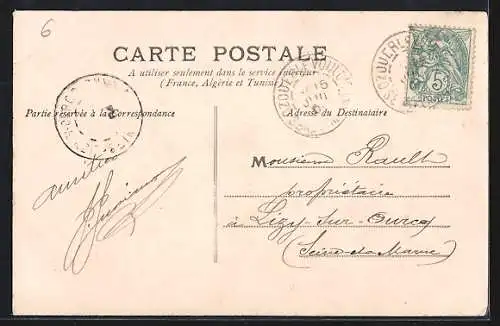 6
CARTE POSTALE
A utiliser seulement dans le service intérieur
(France, Algérie et Tunisie)
Partie réservée à la Correspondance
Adresse du Destinataire
5c
POSTES
amitiés
M Monsieur Rault
propriétaire
à Lizy-Sur-Ourcq
(Seine-et-Marne)